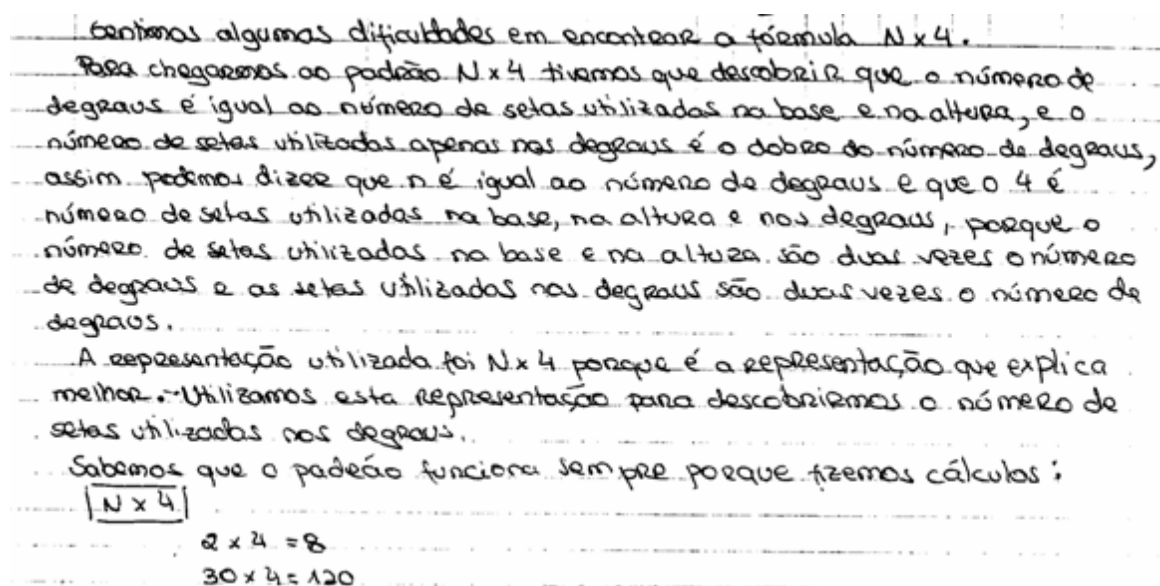 Sentimos algumas dificuldades em encontrar a fórmula N x 4.
Para chegarmos ao padrão N x 4 tivemos que descobrir que o número de
degraus é igual ao número de setas utilizadas na base e na altura, e o
número de setas utilizadas apenas nos degraus é o dobro do número de degraus,
assim podemos dizer que n é igual ao número de degraus e que o 4 é
número de setas utilizadas na base, na altura e nos degraus, porque o
número de setas utilizadas na base e na altura são duas vezes o número
de degraus e as setas utilizadas nos degraus são duas vezes o número de
degraus.
A representação utilizada foi N x 4 porque é a representação que explica
melhor. Utilizamos esta representação para descobrirmos o número de
setas utilizadas nos degraus.
Sabemos que o padrão funciona sempre porque fizemos cálculos:
N x 4
2 x 4 = 8
30 x 4 = 120